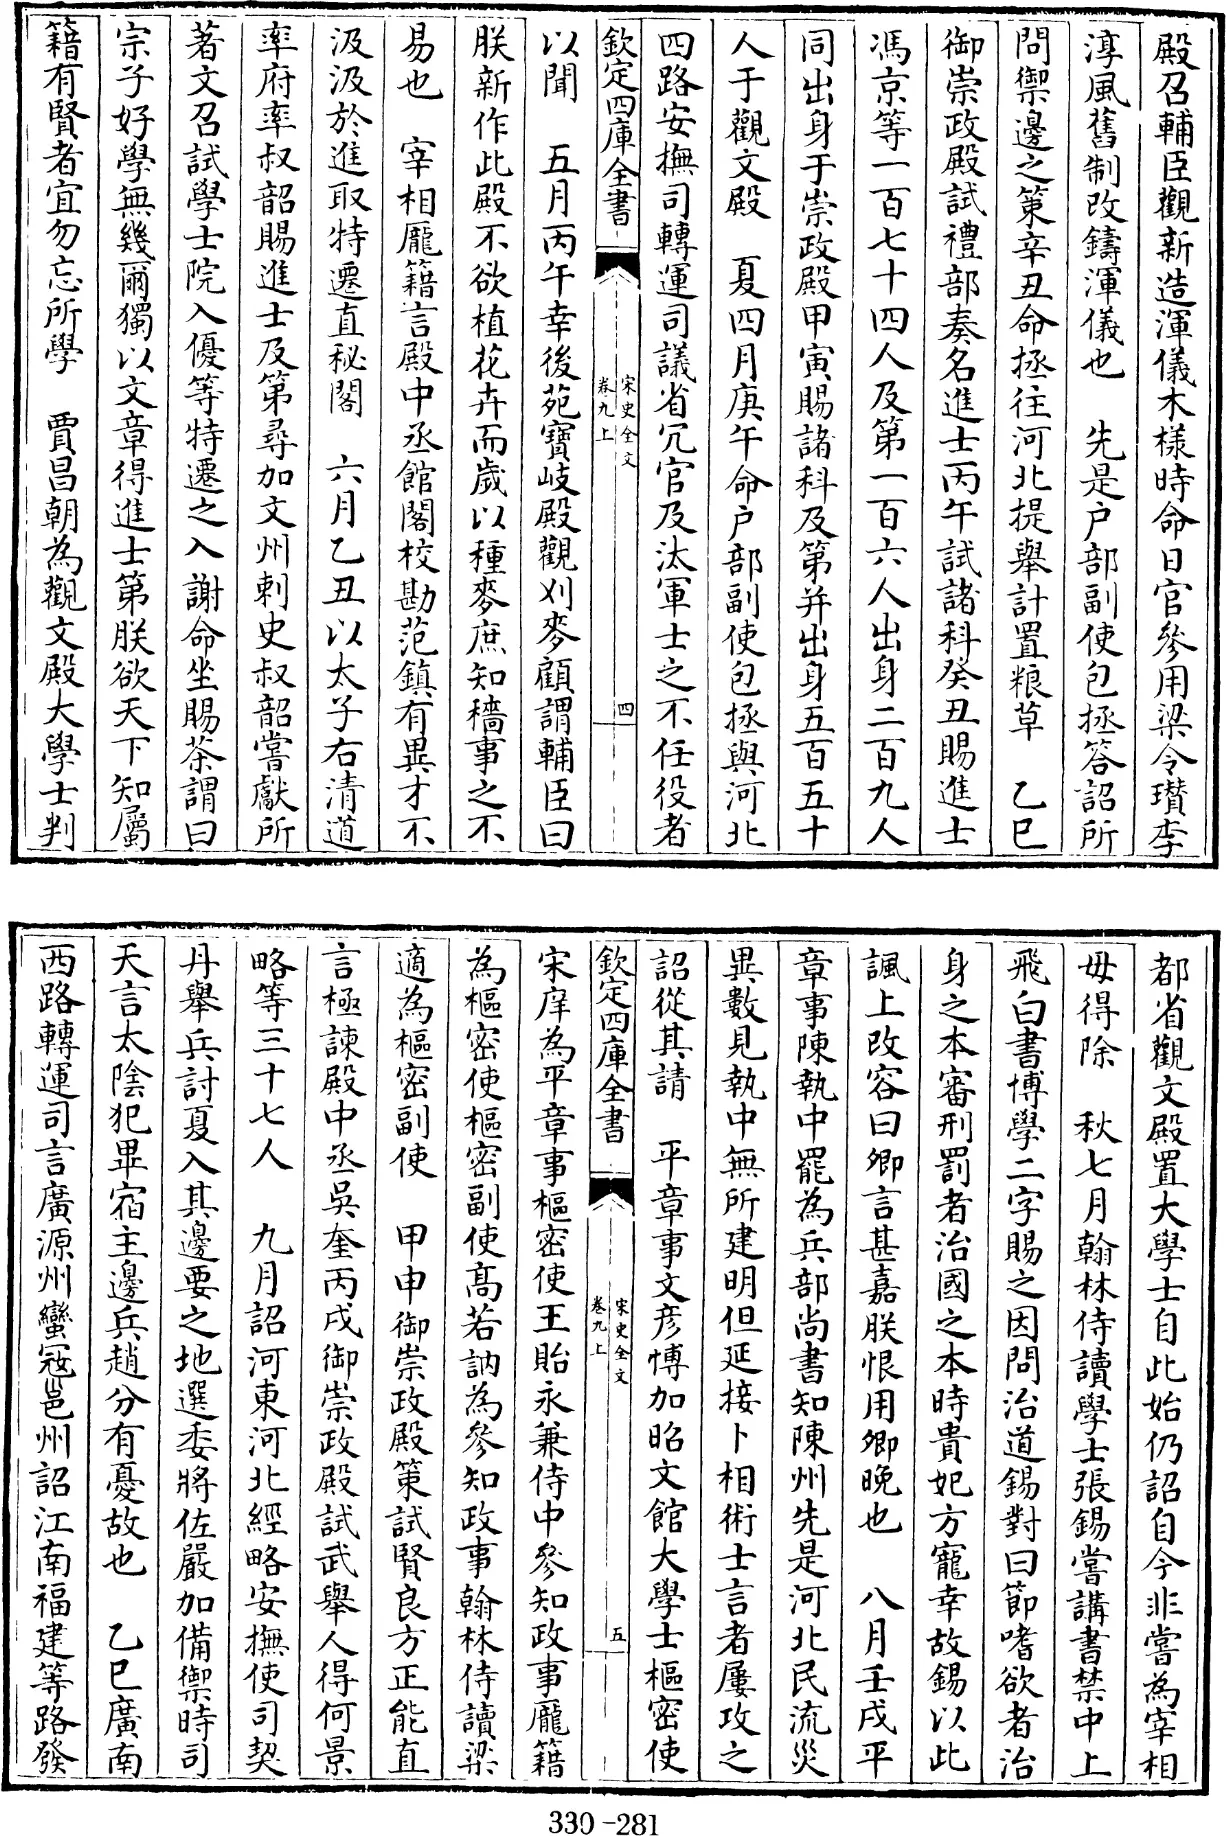 殿召輔臣觀新造渾儀木様時命日官參用梁令瓚李
淳風舊制改鑄渾儀也　先是户部副使包拯答詔所
問禦邊之策辛丑命拯往河北提舉計置粮草　乙巳
御崇政殿試禮部奏名進士丙午試諸科癸丑賜進士
馮京等一百七十四人及第一百六人出身二百九人
同出身于崇政殿甲寅賜諸科及第并出身五百五十
人于觀文殿　夏四月庚午命户部副使包拯與河北
四路安撫司轉運司議省冗官及汰軍士之不任役者
欽定四庫全書
宋史全文
卷九上
四
以聞　五月丙午幸後苑寶岐殿觀刈麥顧謂輔臣曰
朕新作此殿不欲植花卉而歲以種麥庶知穡事之不
易也　宰相龐籍言殿中丞館閣校勘范鎮有異才不
汲汲於進取特遷直秘閣　六月乙丑以太子右清道
率府率叔韶賜進士及第尋加文州刺史叔韶嘗獻所
著文召試學士院入優等特遷之入謝命坐賜茶謂曰
宗子好學無幾爾獨以文章得進士第朕欲天下知屬
籍有賢者宜勿忘所學　賈昌朝為觀文殿大學士判
都省觀文殿置大學士自此始仍詔自今非嘗為宰相
毋得除　秋七月翰林侍讀學士張錫嘗講書禁中上
飛白書博學二字賜之因問治道錫對曰節嗜欲者治
身之本審刑罰者治國之本時貴妃方寵幸故錫以此
諷上改容曰卿言甚嘉朕恨用卿晚也　八月壬戌平
章事陳執中罷為兵部尚書知陳州先是河北民流災
異數見執中無所建明但延接卜相術士言者屢攻之
詔從其請　平章事文彦博加昭文館大學士樞密使
欽定四庫全書
宋史全文
卷九上
五
宋庠為平章事樞密使王貽永兼侍中參知政事龐籍
為樞密使樞密副使髙若訥為參知政事翰林侍讀梁
適為樞密副使　甲申御崇政殿策試賢良方正能直
言極諫殿中丞吳奎丙戌御崇政殿試武舉人得何景
略等三十七人　九月詔河東河北經略安撫使司契
丹舉兵討夏入其邊要之地選委將佐嚴加備禦時司
天言太陰犯畢宿主邊兵趙分有憂故也　乙巳廣南
西路轉運司言廣源州蠻冦邕州詔江南福建等路發
330-281